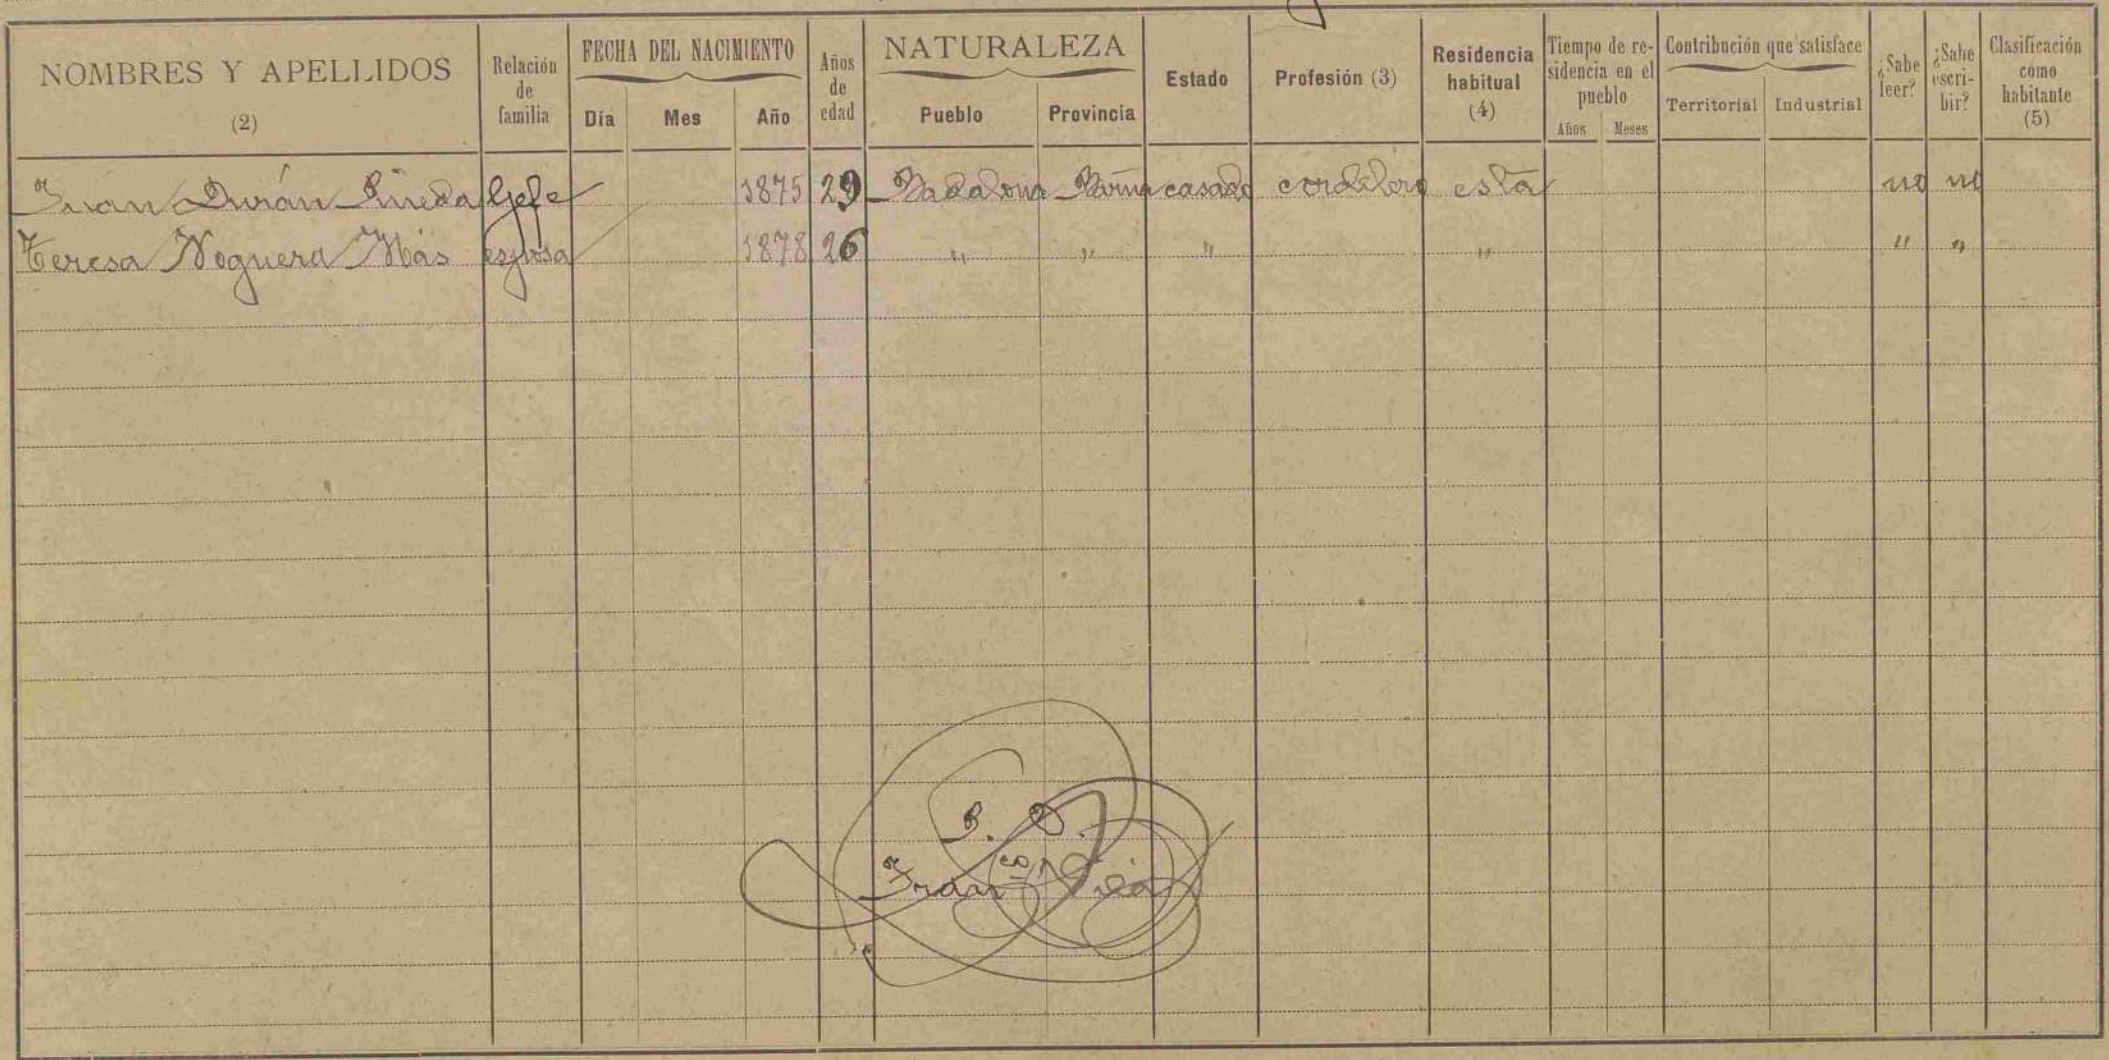 NOMBRES Y APELLIDOS (2) Relación de familia FECHA DEL NACIMIENTO Día Mes Año Años de edad NATURALEZA Pueblo Provincia Estado Profesión (3) Residencia habitual (4) Tiempo de residencia en el pueblo Años Meses Contribución que satisface Territorial Industrial ¿Sabe leer? ¿Sabe escribir? Clasificación como habitante (5)
Juan Durán Pineda Gefe 1875 29 Badalona Barna casado cordelero esta no no
Teresa Noguera Más esposa 1878 26 " " " " " "
P. O.
Franco